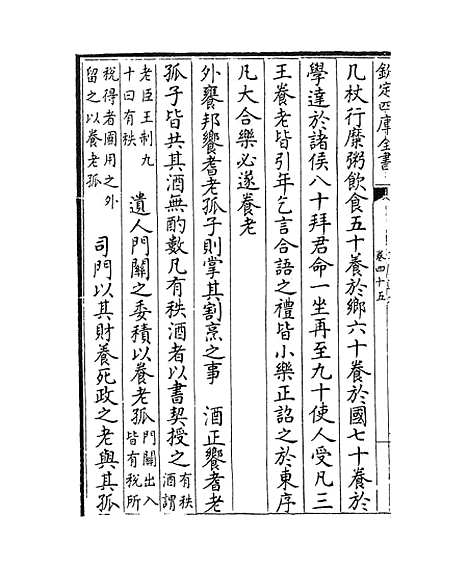 欽定四庫全書
卷四十五
几杖行糜粥飲食五十養於鄉六十養於國七十養於
學達於諸侯八十拜君命一坐再至九十使人受凡三
王養老皆引年乞言合語之禮皆小樂正詔之於東序
凡大合樂必遂養老
外饔邦饗耆老孤子則掌其割烹之事　酒正饗耆老
孤子皆共其酒無酌數凡有秩酒者以書契授之有秩酒謂
老臣王制九十曰有秩　遺人門關之委積以養老孤門關出入皆有稅所
稅得者國用之外留之以養老孤　司門以其財養死政之老與其孤